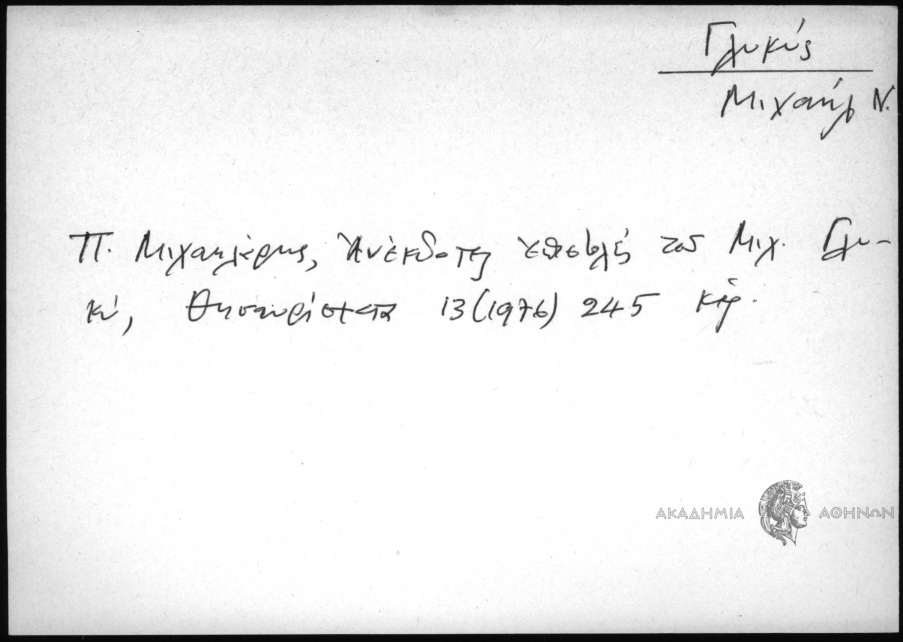 Γλυκύς
Μιχαήλ Ν.
Π. Μιχαηλάρης, Ἀνέκδοτες ἐπιστολές τοῦ Μιχ. Γλυ-
κύ, Θησαυρίσματα 13 (1976) 245 κἑ.
ΑΚΑΔΗΜΙΑ ΑΘΗΝΩΝ